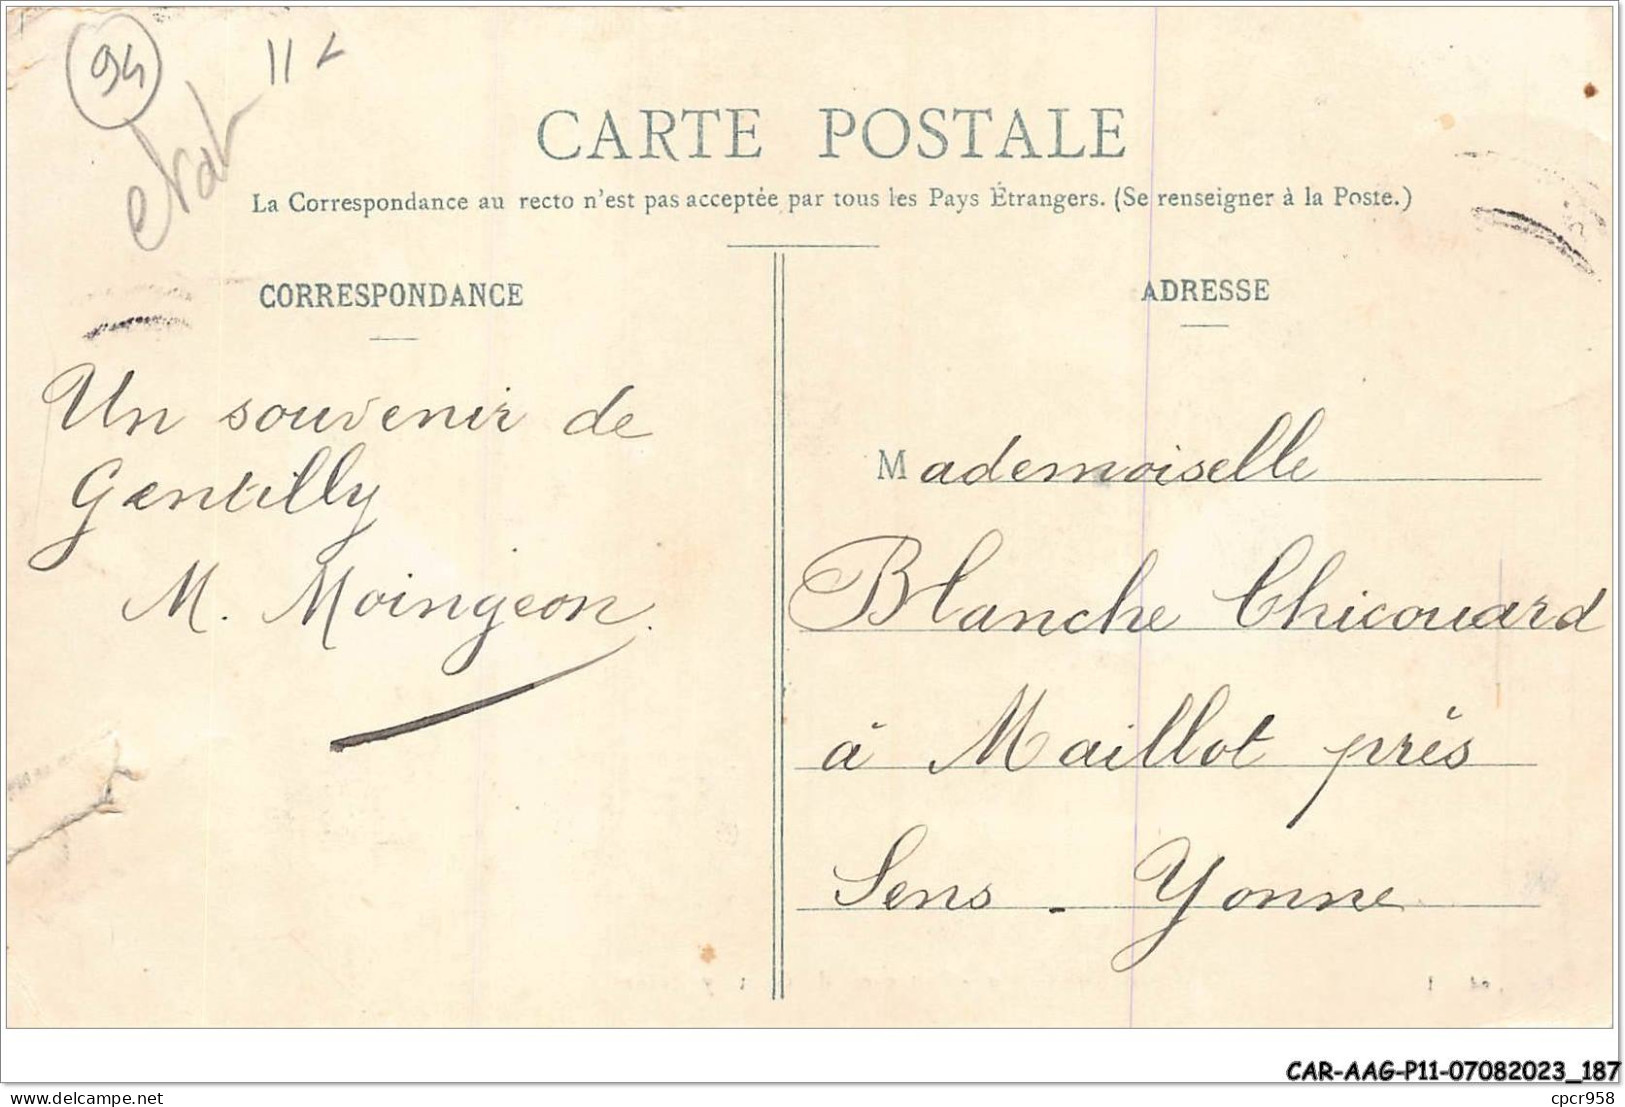 94
etat
11
CARTE POSTALE
La Correspondance au recto n'est pas acceptée par tous les Pays Étrangers. (Se renseigner à la Poste.)
CORRESPONDANCE
Un souvenir de
Gentilly
M. Moingeon
ADRESSE
Mademoiselle
Blanche Chicouard
à Maillot près
Sens - Yonne
CAR-AAG-P11-07082023_187
cpcr958